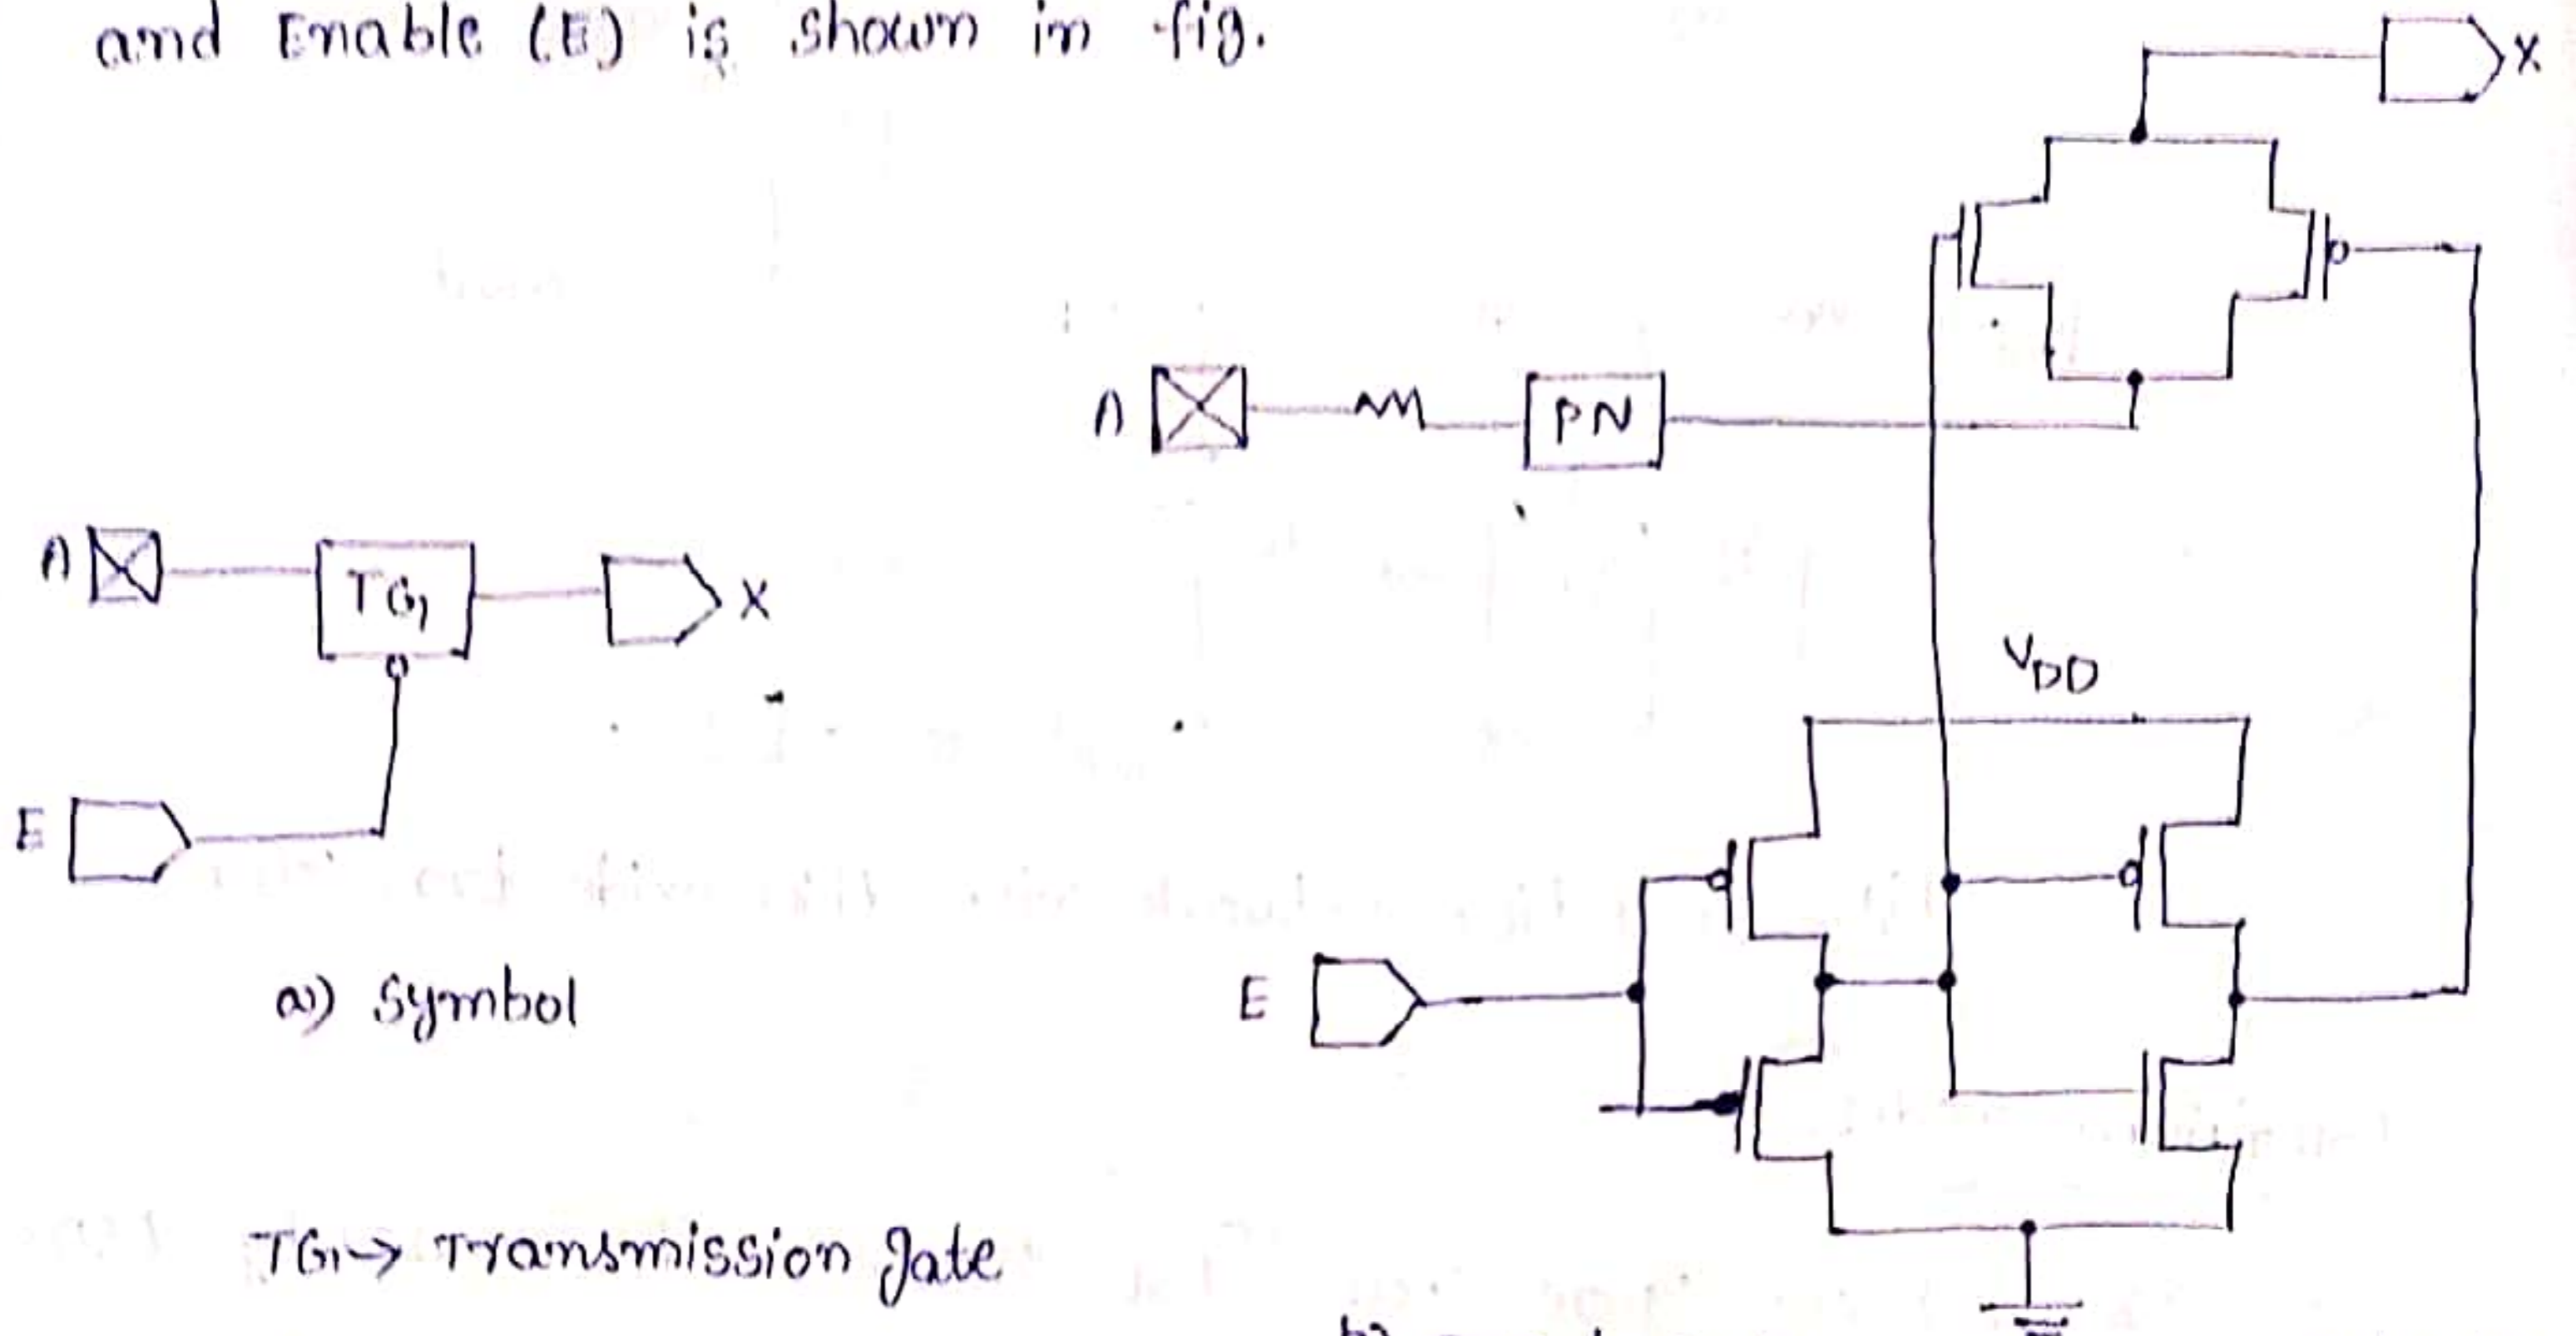 and Enable (E) is shown in fig.
X
A
PN
A
TG
X
VDD
E
E
a) Symbol
TG → Transmission gate
b)